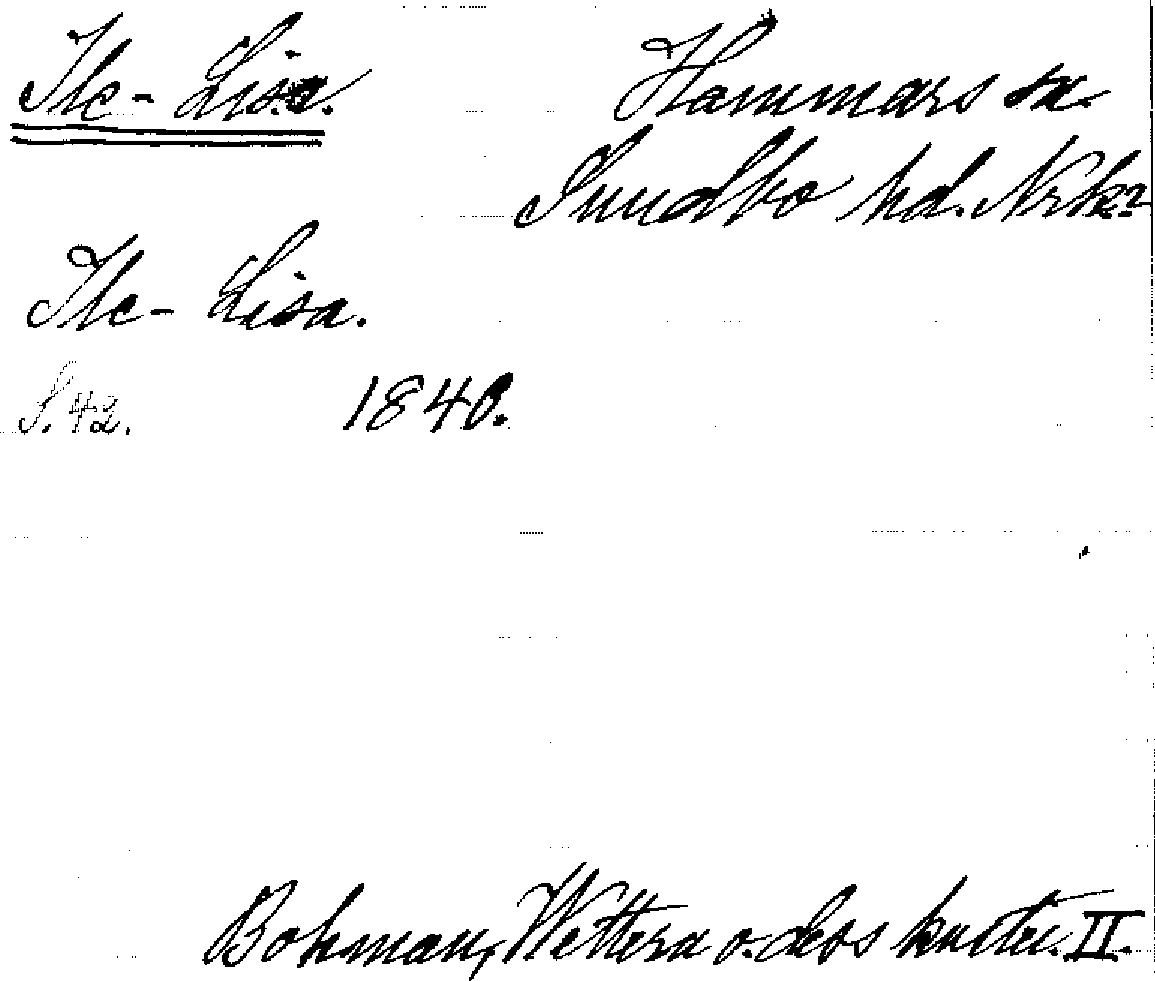 Ilc-Lisa.
Hammars sn.
Sundbo hd. Nrk?
Ilc-Lisa.
S. 42. 1840.
Bohman, Wettern o. dess kuster. II.